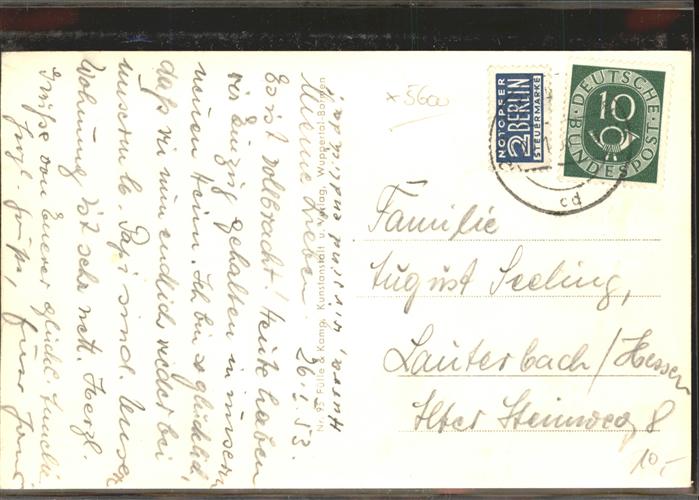 Hurra, wir sind endlich da!
Meine Lieben. 26.1.53.
Es ist vollbracht! Heute haben
wir Einzug gehalten in unserm
neuen Heim. Ich bin so glücklich,
daß wir nun endlich wieder bei
unserem lb. Papi sind. Unsere
Wohnung ist sehr nett. Herzl.
Grüße von Eurer glückl. Familie
Eure
Fülle & Kampf, Kunstanstalt u. Verlag, Wuppertal-Barmen
× 5600
NOTOPFER
2 BERLIN
STEUERMARKE
DEUTSCHE
10
BUNDESPOST
cd
Familie
August Seeling,
Lauterbach/Hessen
Alter Steinweg 8
10,-